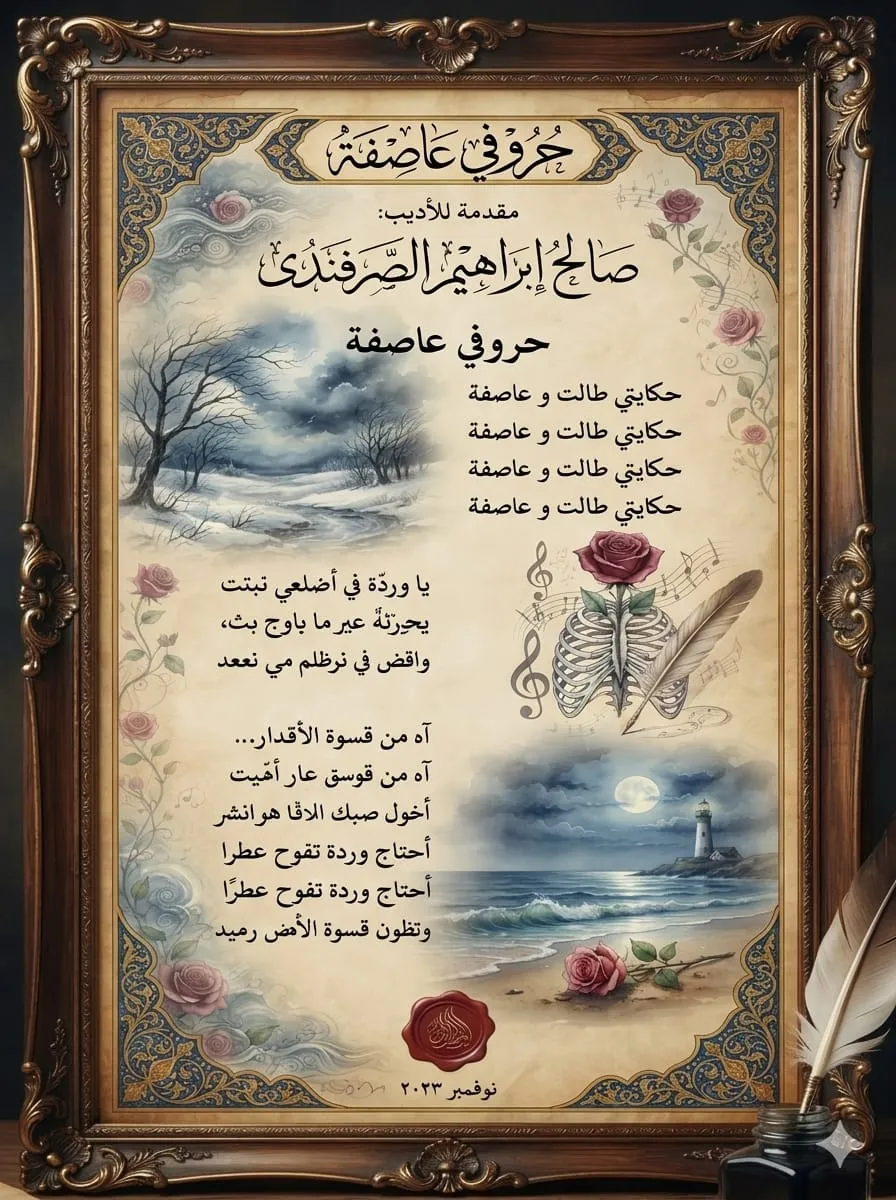 حُرُوفي عَاصِفَة
مقدمة للأديب:
صَالحُ إبرَاهِيْم الصَّرفَندُى
حروفي عاصفة
حكايتي طالت و عاصفة
حكايتي طالت و عاصفة
حكايتي طالت و عاصفة
حكايتي طالت و عاصفة
يا وردّة في أضلعي تبتت
يحرّثةٌ عير ما باوج بث،
واقض في نرظلم مي نععد
آه من قسوة الأقدار...
آه من قوسق عار أهّيت
أخول صبك الاقّا هوانشر
أحتاج وردة تفوح عطرا
أحتاج وردة تفوح عطرًا
وتظون قسوة الأهض رميد
نوفمبر ٢٠٢٣